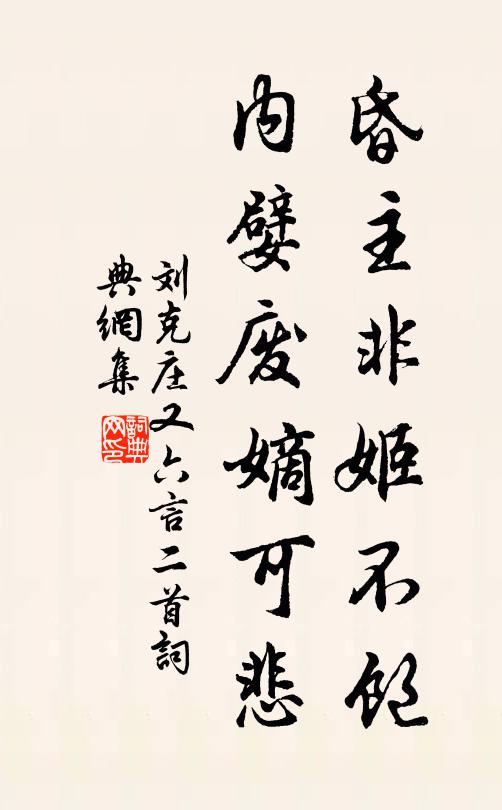 昏主非姬不飽
内嬖废嫡可悲
刘克庄又六言二首詞
典網集
詞典
网印